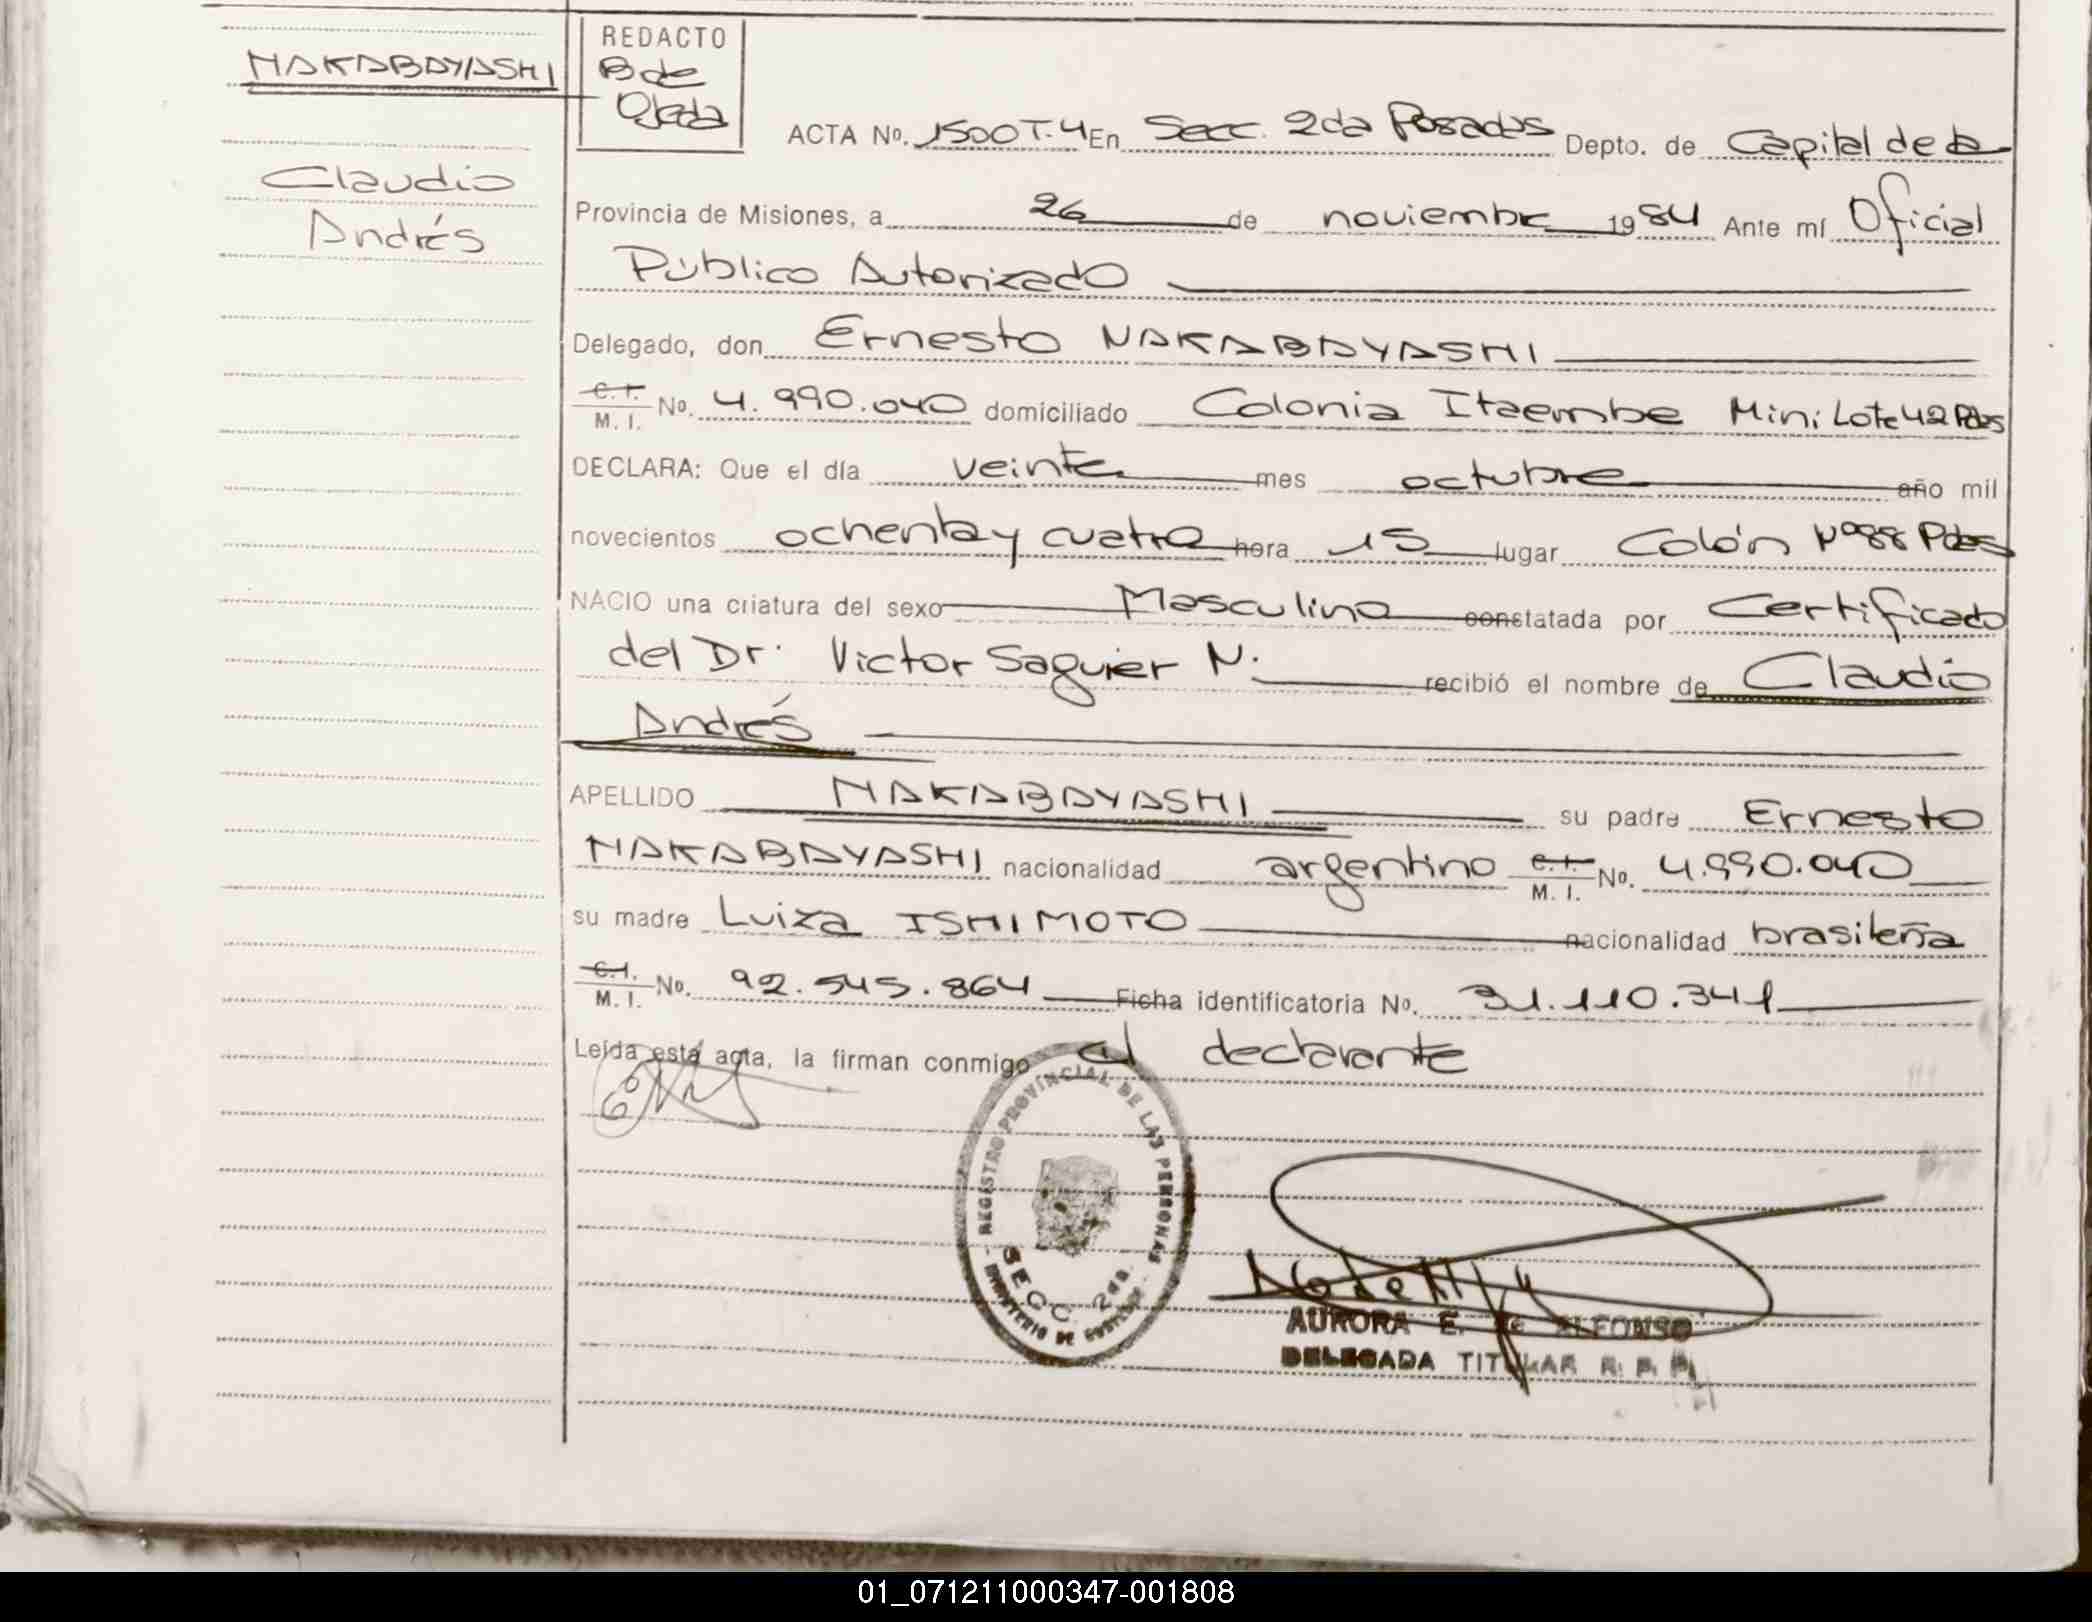 NAKABAYASHI
Claudio
Andrés
REDACTO
B de
Ojeda
ACTA No. 1500 T.4 En Secc. 2da Posadas Depto. de Capital de la
Provincia de Misiones, a 26 de noviembre 1984 Ante mí Oficial
Público Autorizado
Delegado, don Ernesto NAKABAYASHI
C.I. M. I. No. 4.990.040 domiciliado Colonia Itaembe Mini Lote 42 Pdas
DECLARA: Que el día veinte mes octubre año mil
novecientos ochenta y cuatro hora 15 lugar Colón Nº 88 Pdas
NACIO una criatura del sexo Masculino constatada por Certificado
del Dr. Victor Saguier N. recibió el nombre de Claudio
Andrés
APELLIDO NAKABAYASHI su padre Ernesto
NAKABAYASHI nacionalidad argentino C.I. M. I. No. 4.990.040
su madre Luiza ISHIMOTO nacionalidad brasileña
C.I. M. I. No. 92.545.864 Ficha identificatoria No. 31.110.341
Leída esta acta, la firman conmigo el declarante
REGISTRO PROVINCIAL DE LAS PERSONAS
SECC. 2da.
MINISTERIO DE GOBIERNO
AURORA E. de ALFONSO
DELEGADA TITULAR R. P. P.
01_071211000347-001808